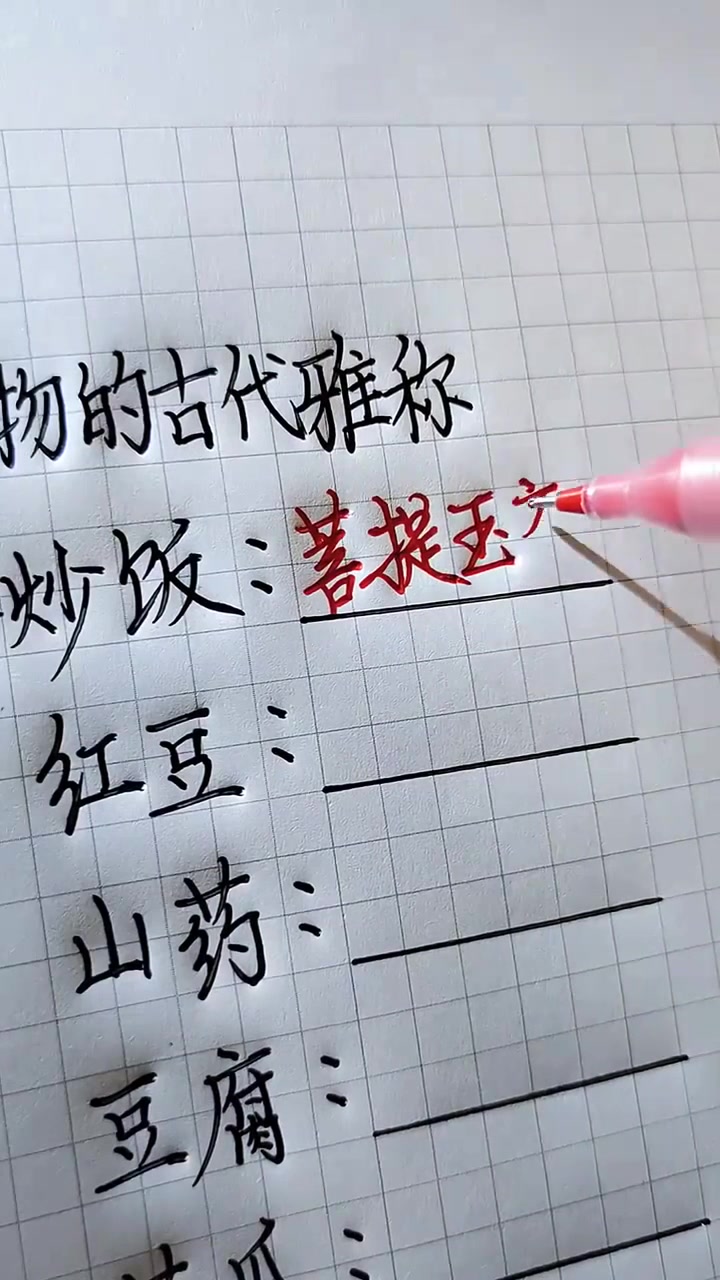 物的古代雅称
炒饭：菩提玉
红豆：
山药：
豆腐：